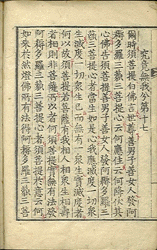 究竟無我分第十七
爾時須菩提白佛言世尊善男子善女人發阿
耨多羅三藐三菩提心云何應住云何降伏其
心佛告須菩提善男子善女人發阿耨多羅三
藐三菩提心者當生如是心我應滅度一切衆
生滅度一切衆生已而無有一衆生實滅度者
何以故須菩提若菩薩有我相人相衆生相壽
者相卽非菩薩所以者何須菩提實無有法發
阿耨多羅三藐三菩提心者須菩提於意云何
如來於然燈佛所有法得阿耨多羅三藐三菩